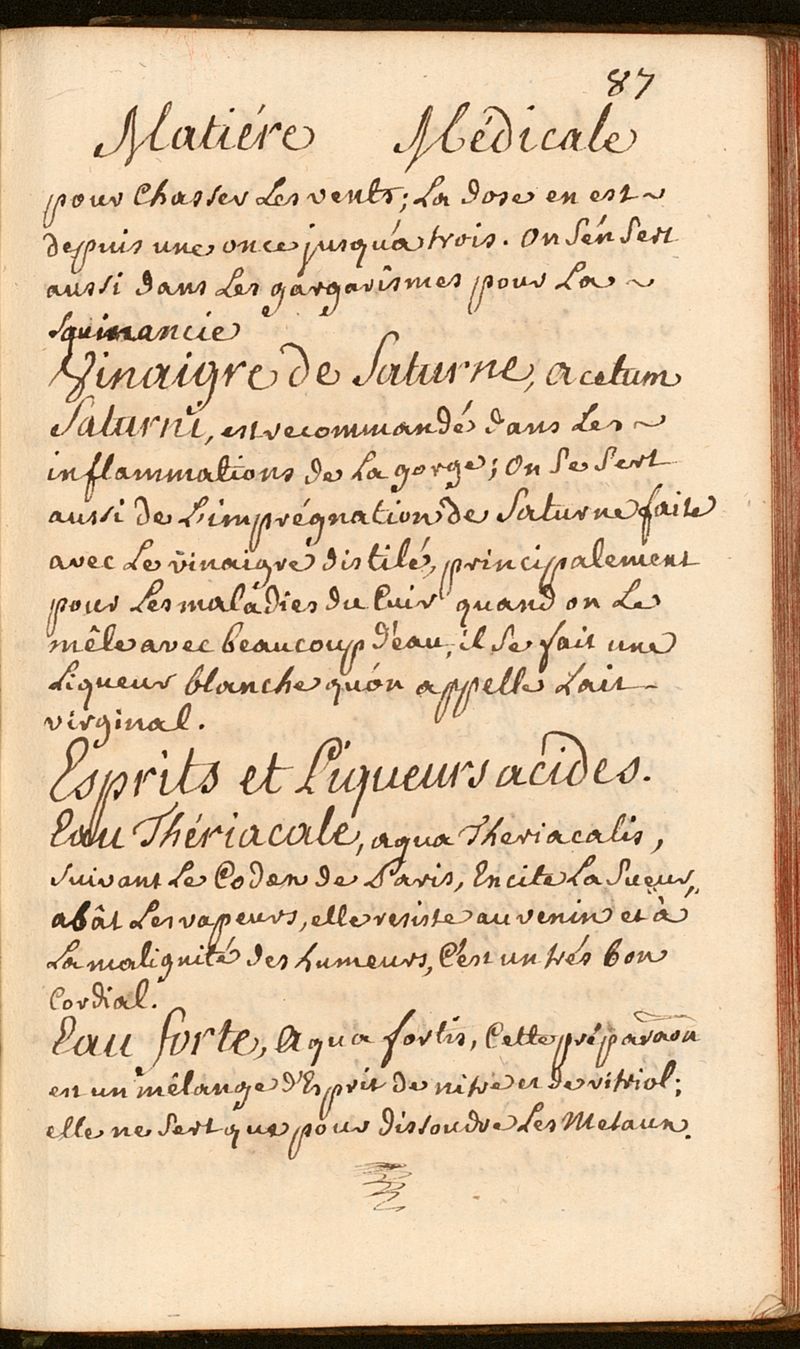 87
Matiére Médicale
pour Chasser Les vents; La dose en est ~
depuis une once jusqu'a trois. On s'én sert
aussi dans Les gargarîsmes pour La ~
squinancie
Vinaigre de Saturne, acetum
Saturni, est recommandé dans Les ~
inflammations de La gorge; On Se Sert
aussi de L'imprégnation de Saturne faite
avec Le vinaigre distilé, principalement
pour Les maladies du Cuir quand on Le
mêle avec beaucoup d'eau, il Se fait une
Liqueur blanche qu'on appelle Lait ~
virginal.
Esprits et Liqueurs acides.
Eau Thériacale, aqua Theriacalis,
suivant Le Codex de Paris, Excite La Sueur,
abât Les vapeurs, elle resiste au venin et à
La malignité des humeurs, C'est un trés bon
Cordial.
Eau forte, Aqua fortis, Cette préparaon
est un mélange d'Esprit de nitre et de vitriol;
elle ne Sert que pour dissoudre Les Metaux.